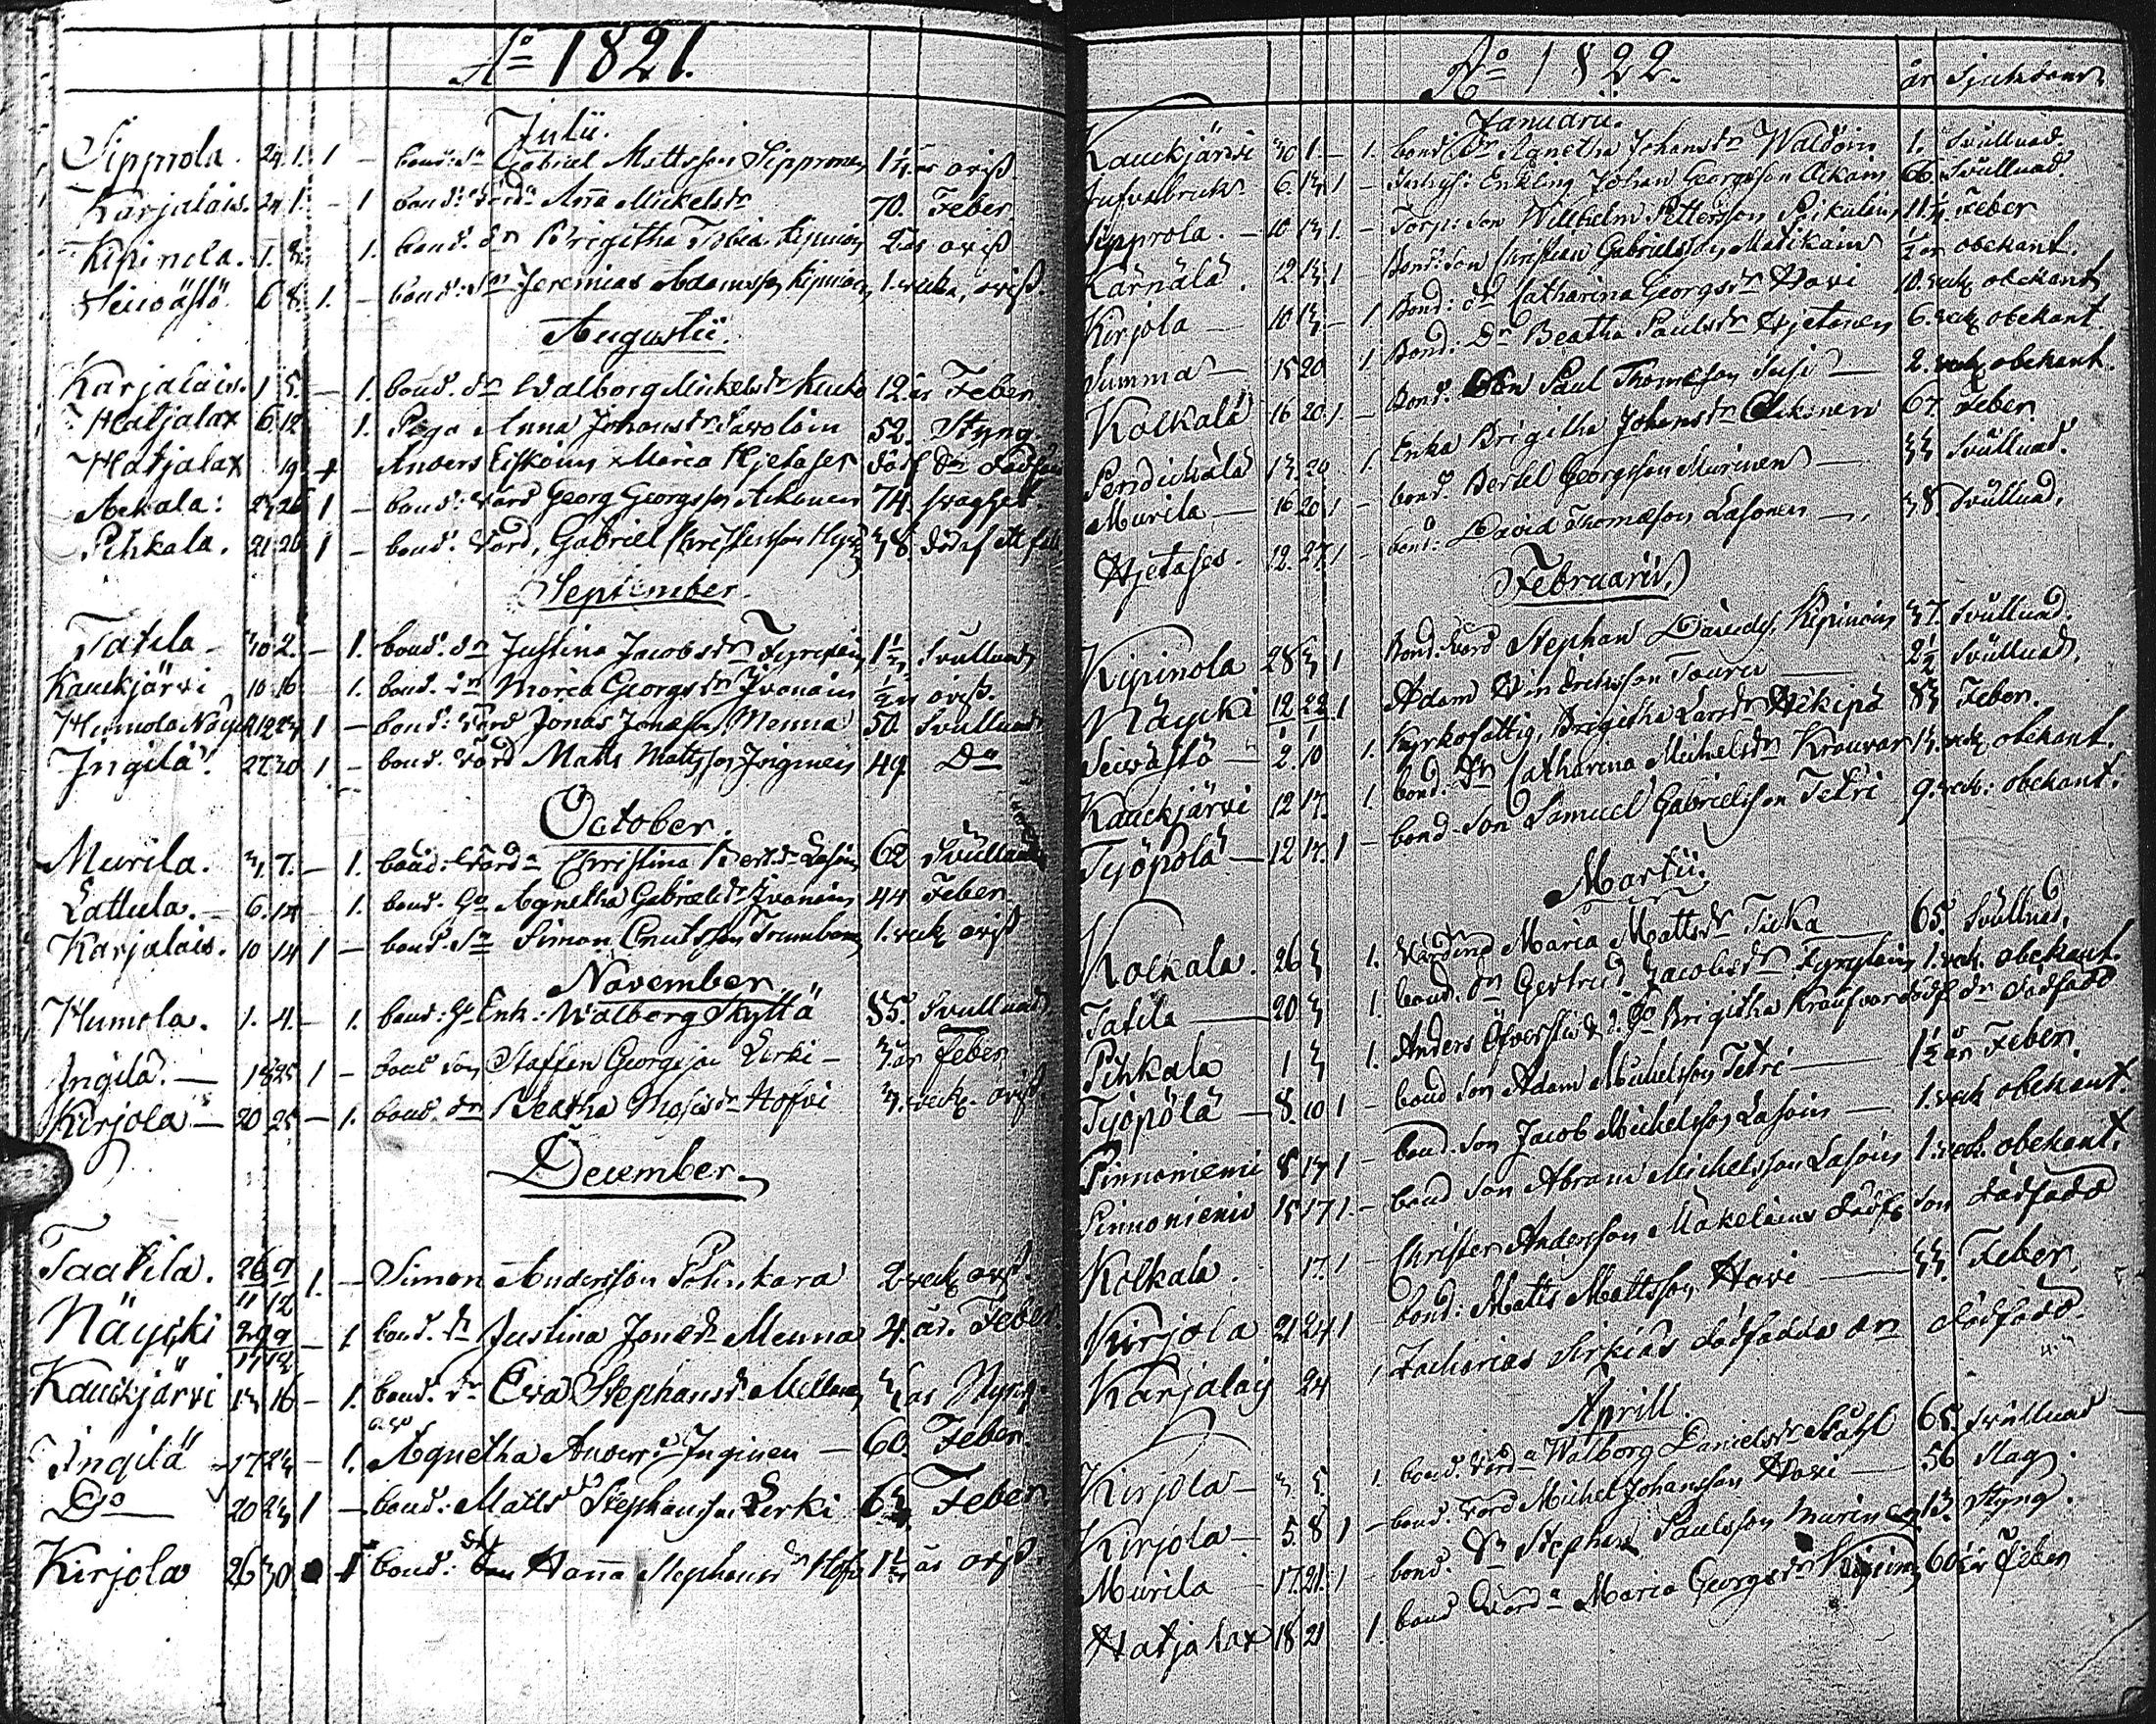 Ao 1821.
Julii.
Sippola. 24. 1. 1 – bond: Sn Gabriel Mattsson Sipponen 1½ år oviss.
Karjalais. 24 1. – 1 bond: Värdn Anna Mickelsdr 70. Feber.
Kipinola. 1. 8. 1. bond. dr Brigitha Tobia Kipinoin år oviss
Seiwästö 6 8. 1. – bond: Sn Jeremias Adamsson Kipinoin 1. vecka, oviss.
Augustii.
Karjalais. 1 5. – 1. bond. dr Walborg Mickelsdr 12 år Feber
Hatjalax 6. 12 1. Piga Anna Johansdr Savolain 52. Styng.
Hatjalax 19 Anders Eiskoins Maria Hjetases dödf. dr Dödf
Ackala: 26 1 – bond: Värd Georg Georgsson Ackanen 74. svaghet.
Pihkala. 21. 26 1 – bond. Värd, Gabriel 38.
September.
Tatila – 30 2. – 1. bond. dr Justina Jacobsdr 1½ Svullnad
Kauckjärvi 10 16 – 1. bond. dr Maria Georgsdr Ivanain ½ år oviss.
Humola Näycki 19 23 1 – bond: Värd Jonas Jonasson Menna 50. Svullnad
Ingilä. 27 30 1 – bond. Värd Matts Mattsson Inginen 49 Do
October.
Murila. 3. 7. – 1. bond: Värdn Christina 62 Svullnad
Lattula. – 6. 14 – 1. bond. Ga Agnetha Gabrielsdr Ivanain 44 Feber
Karjalais. 10 14 1 – bond. Sn Simon Cnutsson 1. veck oviss
November
Humola. 1. 4. – 1. bond: Enk. Walborg Skyttä 55. Svullnad.
Ingilä. – 18 25 1 – bond son Staffan Georgsson Lerki – 3 år Feber
Kirjola – 20 25 – 1. bond. dr Beatha Mosisdr Hofvi 3. veck. oviss
December.
Taatila. 26/11 9/12 1. – Simon Andersson Pohinkara 2 veck oviss.
Näycki 29/11 9/12 – 1 bond. dr Justina Jonædr Menna 4. år. Feber
Kauckjärvi 13 16 – 1. bond. dr Eva Stephansdr år Styng.
Ingilä 17 23 – 1. Agnetha Andersd. Inginen – 60. Feber.
Do 20 23 1 – bond: Matts Stephansson Lerki 63 Feber
Kirjola 26 30 1 bond. Hanna Stephansdr Hofvi 1½ år oviss.
Ao 1822. år Sjukdom
Januarii.
Kauckjärvi 30 1. – 1. bond Dr Agnetha Johansdr 1. Svullnad.
6. 13 1 – Enkling Johan Georgsson 66. Svullnad.
Sipprola. – 10 13 1. – Torp: Son Willhelm Pettersson 11¼ Feber
Kärnälä. 12 13 1 – Bond: Son Christian Gabrielsson Matikain ½ år obekant.
Kirjola – 10 13 – 1 Bond: dr Catharina Georgsdr Havi 10. veck obekant
Summa – 15 20 1 Bond: Dr Beatha Paulsdr Hjetanen 6. veck obekant.
Kolkala 16 20 1 – Bond. Son Paul Thomæson Susi – 2. veck obekant.
Pendickälä 13. 20 1. Enka Brigitha Johansdr 67. Feber
Murila – 16 20 1 – bond. Bertel Georgsson Murinen – 33 Svullnad.
Hjetases. 12. 27. 1 – bond: David Thomæson Lasonen – 38. Svullnad.
Februarii.
Kipinola 28 3 1 Bond. Värd Stephan Davids. Kipinoin 37. Svullnad.
Näycki 12 22 1 Adam Hindricksson Tauru – 2½ Svullnad.
Seivästö – 2. 10 1. Kyrkofattig, Brigitha Larsdr 83 Feber.
Kauckjärvi 12 17. 1. bond: Dr Catharina Michelsdr Krouvar 13. veck obekant.
Työpölä – 12 17. 1 – bond Son Samuel Gabrielsson Tetri 9. veck: obekant.
Martii.
Kolkala. 26 3 1. Värdina Maria Mattsdr Ticka 65. Svullnad.
Tatila – 20 3 1. bond. dr Gertrud Jacobsdr 1. veck. obekant.
Pihkala 1 3 1. Anders Brigitha dödf dr dödfödd
Työpölä – 8. 10 1 – bond son Adam Michelsson Tetri – 1½ år Feber.
Pinnoniemi 8 17 1 – bond. son Jacob Michelsson Lasoin – 1. veck obekant.
Pinnoniemi 15 17 1. – bond son Abram Michelsson Lasoin 1. veck. obekant.
Kolkala. 17. 1 – Christer Andersson Mäkeläins dödf. son dödfödd
Kirjola 21 24 1 bond: Matts Mattsson Havi – 33. Feber.
Karjalais 24 1 Zacharias Sirkias dödfödda dr dödfödd.
Aprill.
Kirjola – 3 5. 1. bond. Värda Walborg Danielsdr Ståhl 65. Svullnad
Kirjola – 5. 8 1 – bond. Värd Michel Johansson Havi – 56 Slag.
Murila – 17. 21. 1 – bond. Sn Stephan Paulsson Murinen 13. Styng.
Hatjalax 18 21 1. bond Värda Maria Georgsdr 60 år Feber